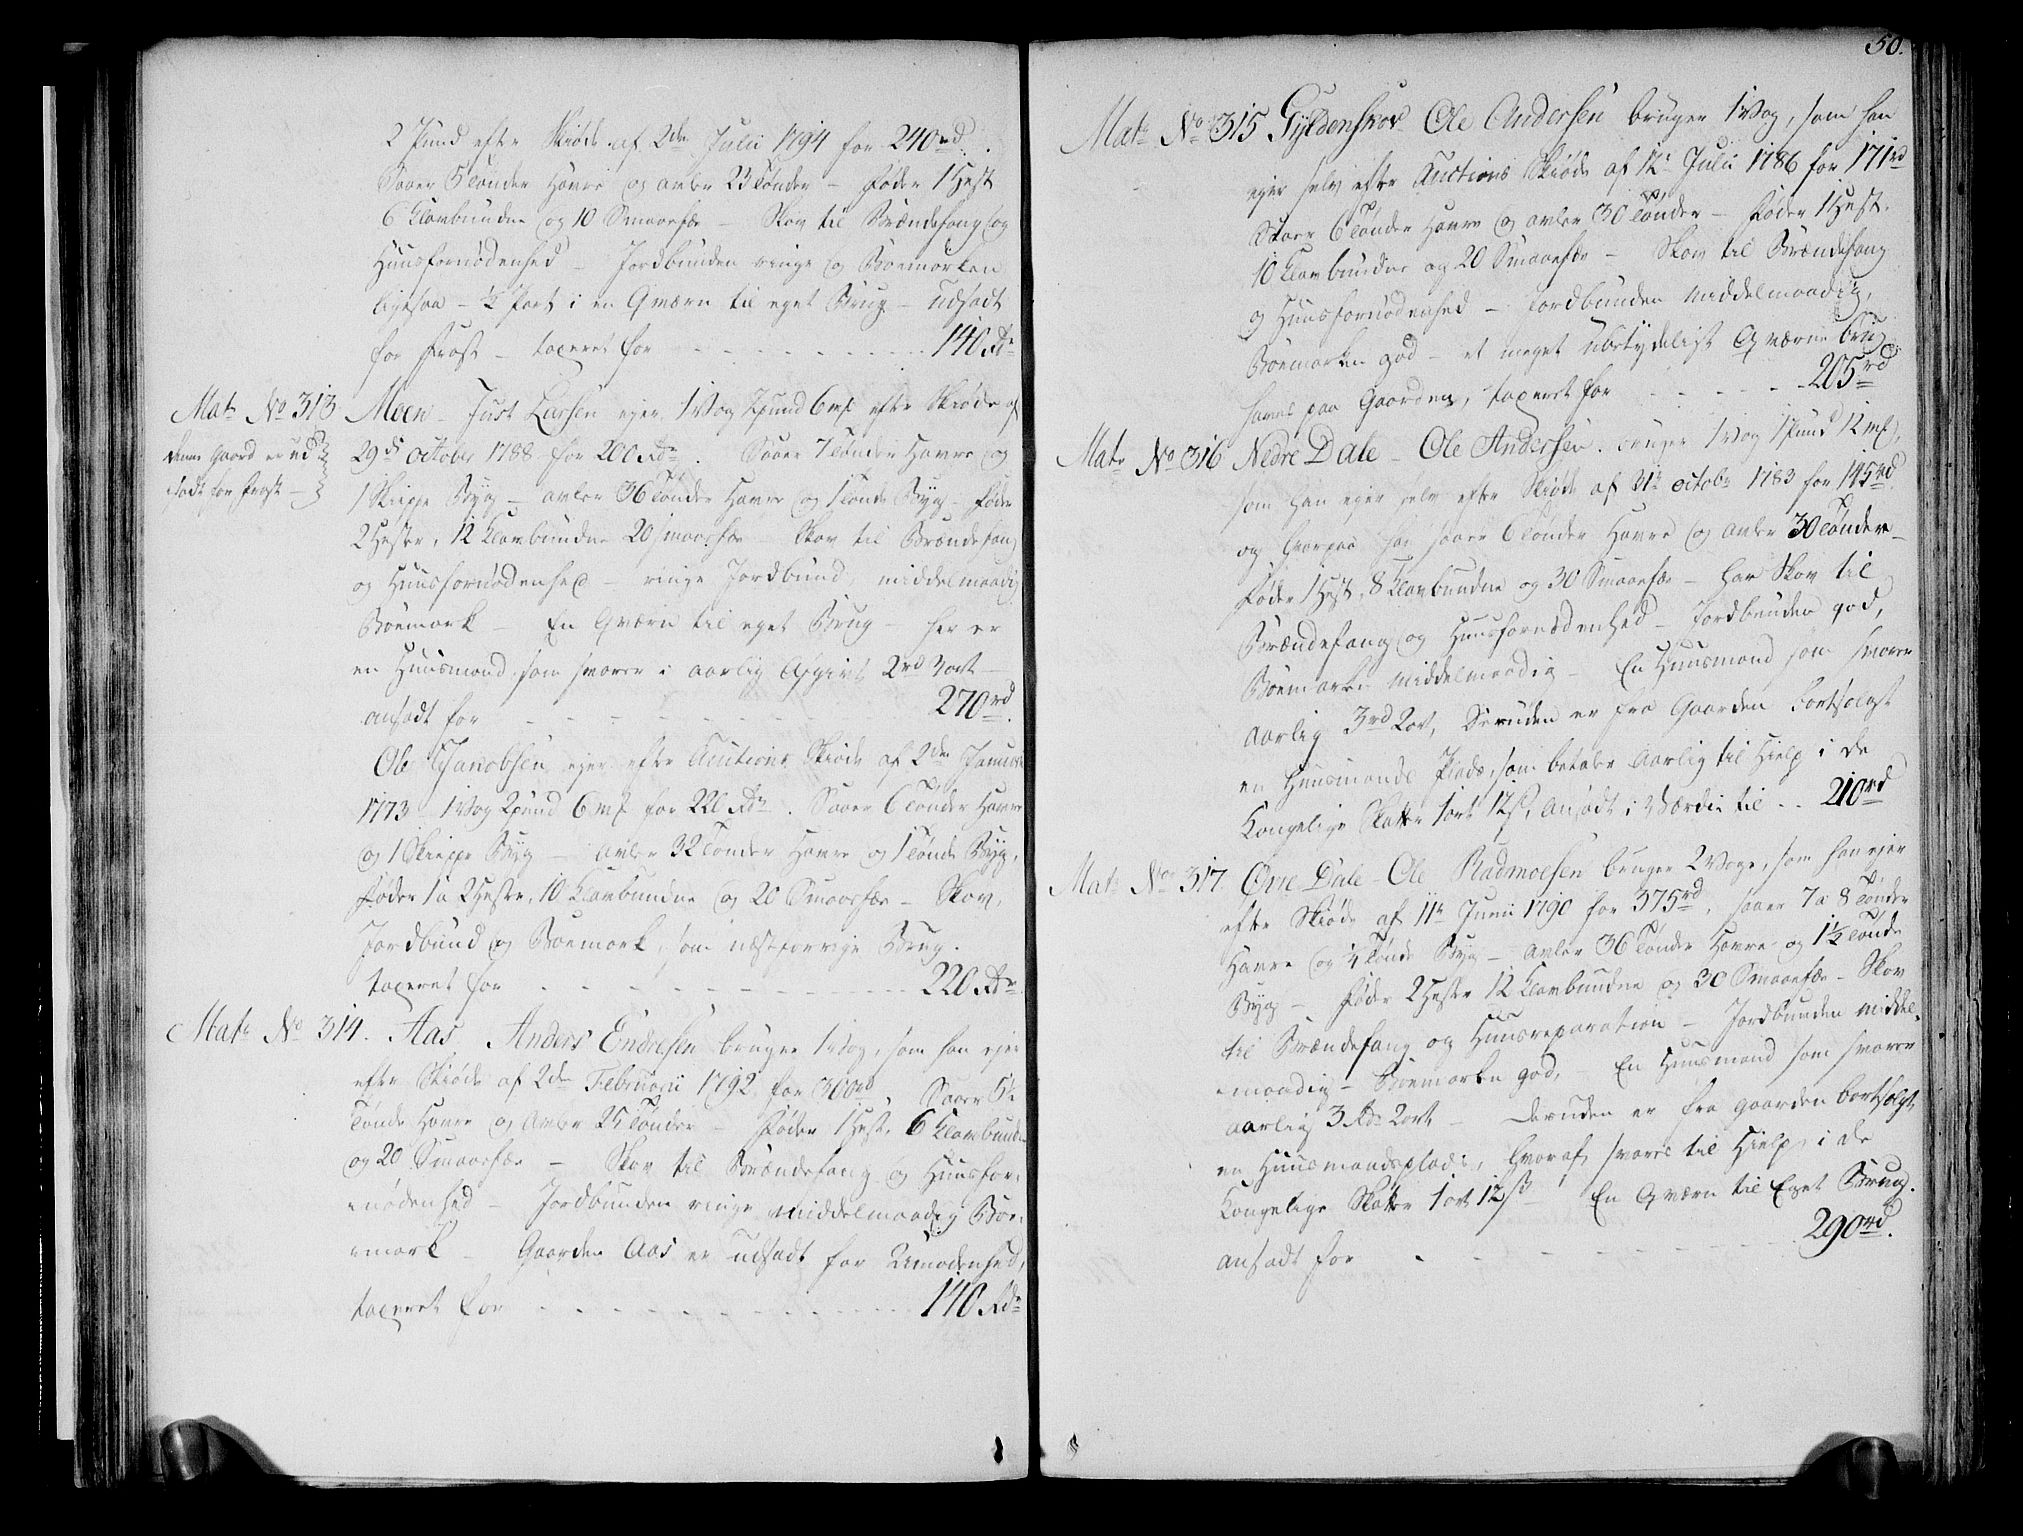 2 Pund efter Skiøde af 2den Julii 1794 for 240rd.
Saaer 5 Tønder Havre og avler 23 Tønder – Føder 1 Hest
6 Klovbundne og 10 Smaafæ – Skov til Brændefang og
Huusfornødenhed – Jordbunden ringe og Bøemarken
ligesaa – ½ Part i en Qværn til eget Brug – Udsadt
for Frost – taxeret for - - - - - - - - 140 Rdr
Matr No 313 Meen – Just Larsen ejer 1 Vog 2 pund 6 mk efter Skiøde af
denne Gaard er ud-
sadt for Frost –
29de October 1788 for 200 Rdr. Saaer 7 Tønder Havre og
1 Skieppe Byg – avler 36 Tønder Havre og 1 Tønde Byg – Føder
2 Heste, 12 Klovbundne 20 smaafæ – Skov til Brændefang
og Huusfornødenhed – ringe Jordbund, middelmaadig
Bøemark – En Qværn til eget Brug – her er
en Huusmand som svarer i aarlig Afgivt 2rd 3 ort –
ansadt for - - - - - - - - 270rd.
Ole Jacobsen ejer efter Auctions Skiøde af 2den Januarii
1773 1 Vog 2 pund 6 mk for 220 Rdr. Saaer 6 Tønder Havre
og 1 Skieppe Byg – avler 32 Tønder Havre og 1 Tønde Byg,
Føder 1 a 2 Heste, 10 Klovbundne og 20 Smaafæ – Skov,
Jordbund og Bøemark, som næstforrige Brug.
taxeret for - - - - - - - - 220 Rdr.
Matr No 314. Aas Anders Endresen bruger 1 Vog, som han ejer
efter Skiøde af 2den Februarii 1792 for 300rd. Saaer 5½
Tønde Havre og avler 25 Tønder – Føder 1 Hest, 6 Klovbundne
og 20 Smaafæ – Skov til Brændefang og Huusfor-
nødenhed – Jordbunden ringe middelmaadig Bøe-
mark – Gaarden Aas er udsadt for Umodenhed,
taxeret for - - - - - - - - 140 Rdr
50.
Matr No 315 Gyldenskov Ole Andersen bruger 1 Vog, som han
ejer selv efter Auctions Skiøde af 12te Julii 1786 for 171rd
Saaer 6 Tønder Havre og avler 30 Tønder – Føder 1 Hest,
10 Klovbundne og 20 Smaafæ – Skov til Brændefang
og Huusfornødenhed – Jordbunden middelmaadig,
Bøemarken god – et meget ubetydeligt Qværnebrug
haves paa Gaarden, taxeret for - - - - 205rd
Matr No 316 Nedre Dale – Ole Andersen bruger 1 Vog 1 Pund 12 mk,
som han ejer selv efter Skiøde af 31te octobr 1783 for 145rd
og hvorpaa han saaer 6 Tønder Havre og avler 30 Tønder –
Føder 1 Hest, 8 Klovbundne og 30 Smaafæ – har Skov til
Brændefang og Huusfornødenhed – Jordbunden god,
Bøemarken middelmaadig – En Huusmand som svarer
aarlig 3rd 2 ort, desuden er fra Gaarden bortsolgt
en Huusmands Plads, som betaler aarlig til Hielp i de
Kongelige Skatter 1 ort 12 s, ansadt i Værdie til - - 210rd
Matr No 317. Øvre Dale – Ole Radmoesen bruger 2 Voge, som han ejer
efter Skiøde af 11te Junii 1790 for 375rd, saaer 7 a 8 Tønder
Havre og ¼ Tønde Byg – avler 36 Tønder Havre og 1½ Tønde
Byg – Føder 2 Heste 12 Klovbundne og 30 Smaafæ – Skov
til Brændefang og Huusreparation – Jordbunden middel-
maadig – Bøemarken god, – En Huusmand som svarer
aarlig 3 Rdr 2 ort – desuden er fra gaarden bortsolgt
en Huusmandsplads, hvoraf svares til Hielp i de
Kongelige Skatter 1 ort 12 s – En Qværn til Eget Brug.
ansadt for - - - - - - - - 290rd.